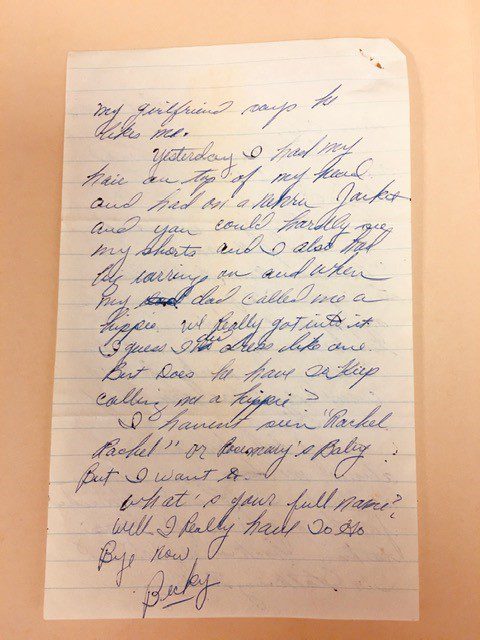 my girlfriend says he
likes me.
Yesterday I had my
hair on top of my head
and had on a Nehru Jacket
and you could hardly see
my shorts and I also had
my earrings on and when
my dad called me a
hippie. We Really got into it
I guess I did dress like one.
But Does he have to keep
calling me a hippie?
I havent seen "Rachel
Rachel" or Rosemary's Baby
But I want to.
What's your full name?
Well I Really have To Go
Bye Now
Becky